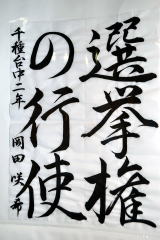 選挙権
の行使
千種台中二年 岡田咲希